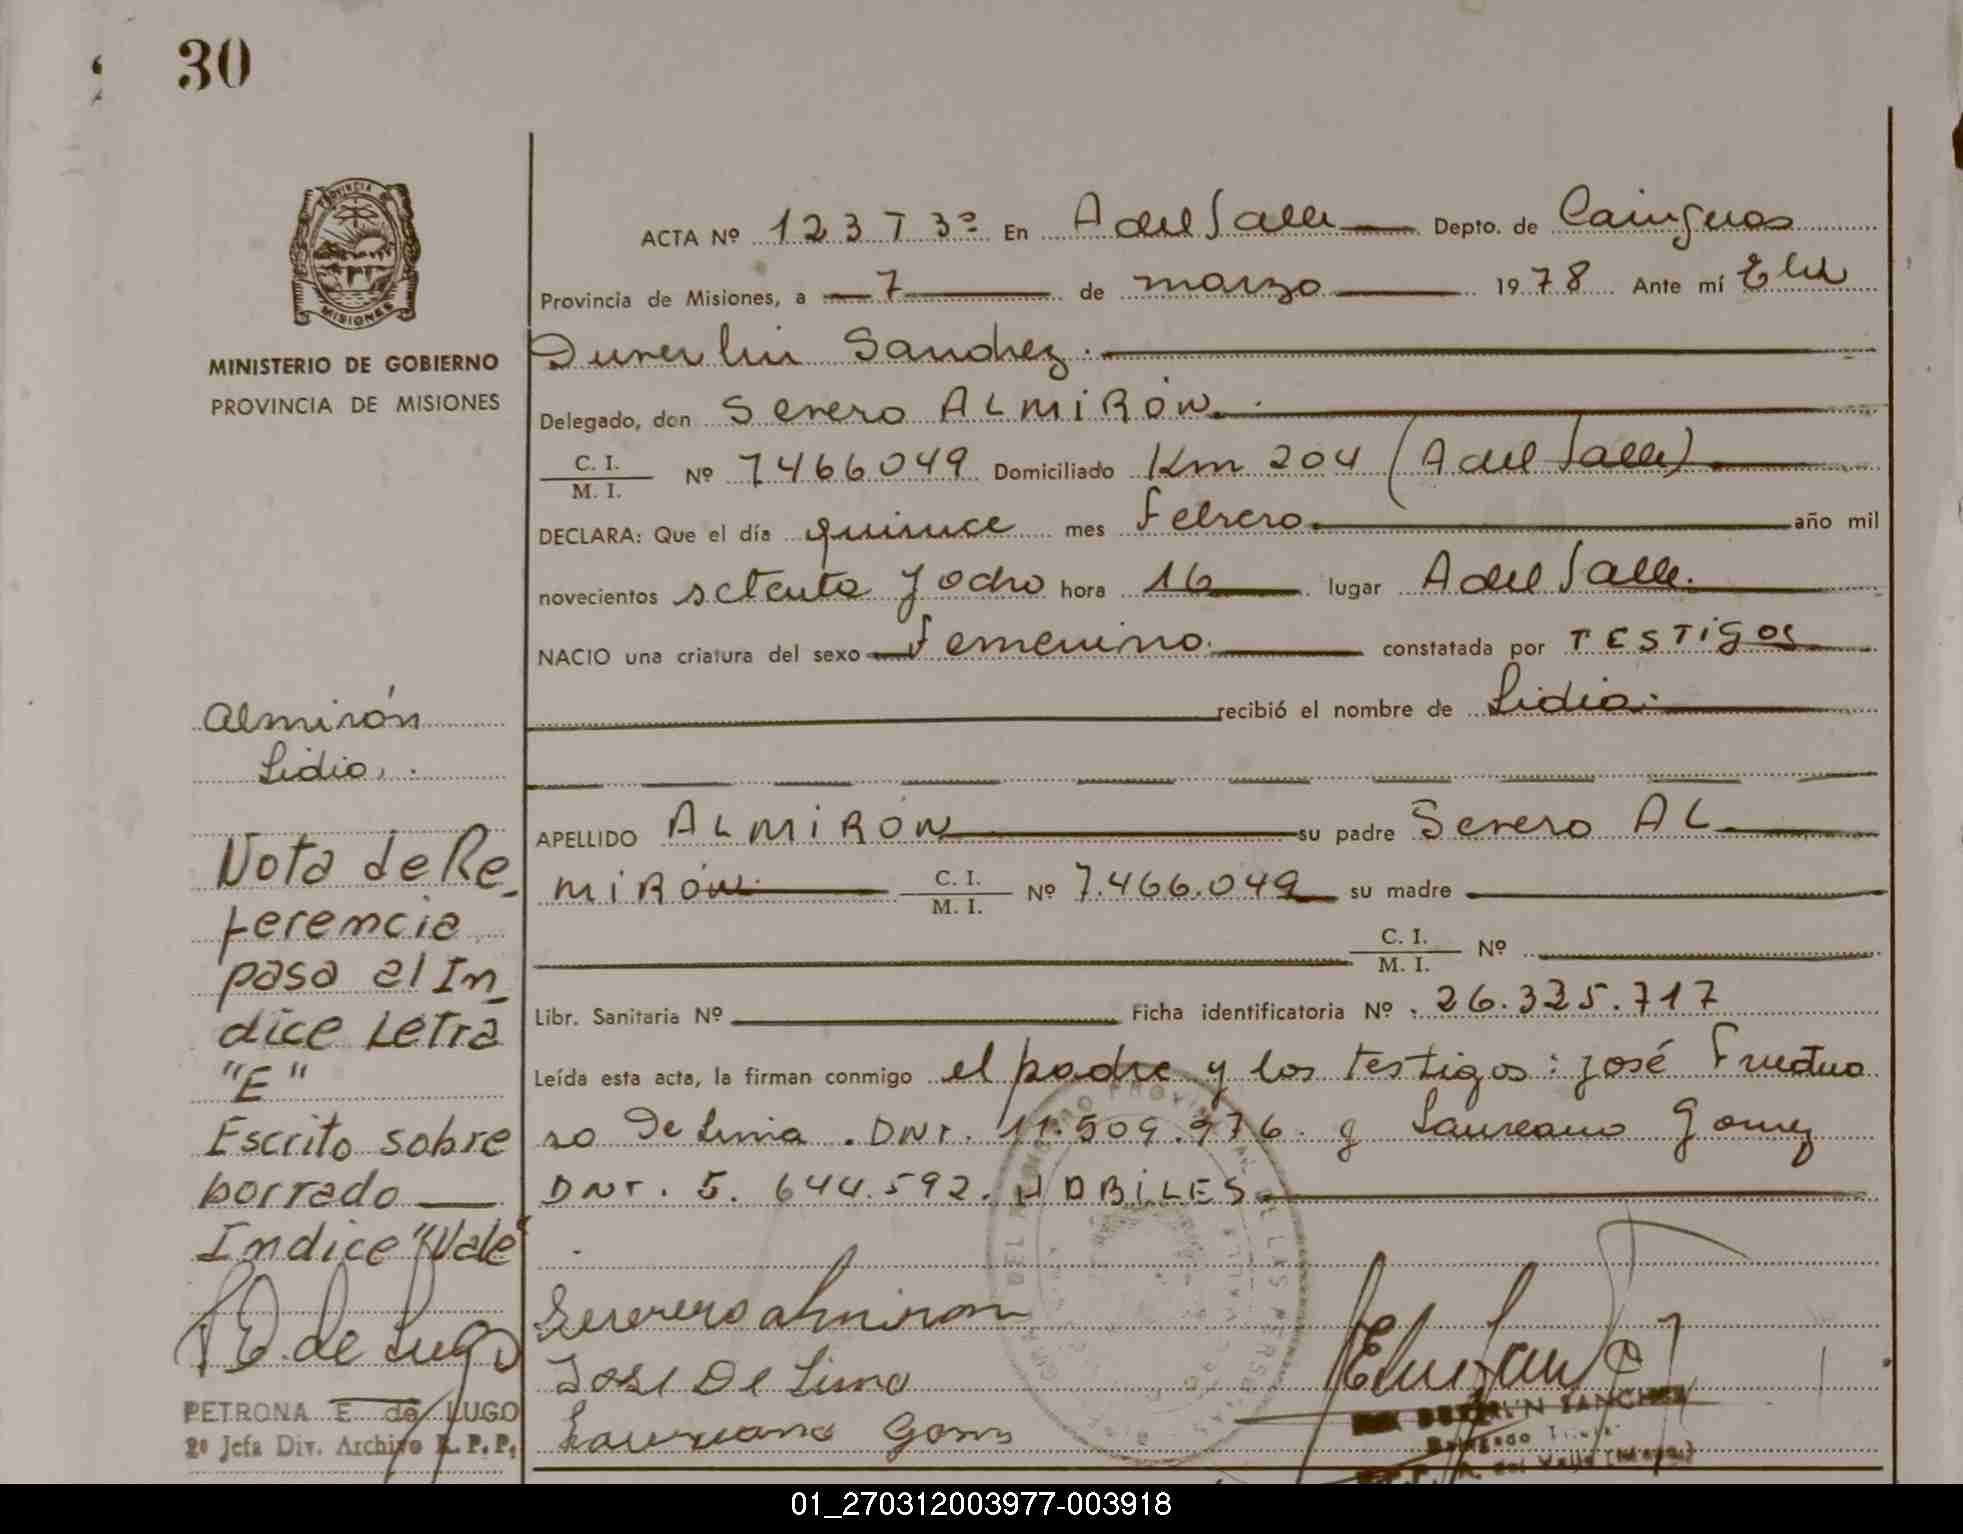 30
PROVINCIA
MISIONES
MINISTERIO DE GOBIERNO
PROVINCIA DE MISIONES
ACTA Nº 123 T 3º En A del Valle Depto. de Cainguas
Provincia de Misiones, a 7 de marzo 1978 Ante mí
Sanchez.
Delegado, don Severo ALMIRÓN.
C. I.
M. I. Nº 7466049 Domiciliado Km 204 (A del Valle)
DECLARA: Que el día quince mes Febrero año mil
novecientos setenta y ocho hora 16 lugar A del Valle.
NACIO una criatura del sexo Femenino. constatada por TESTIGOS
recibió el nombre de Lidia.
APELLIDO ALMIRÓN su padre Severo AL
MIRÓN. C. I.
M. I. Nº 7.466.049 su madre
C. I.
M. I. Nº
Libr. Sanitaria Nº Ficha identificatoria Nº 26.325.717
Leída esta acta, la firman conmigo el padre y los testigos: José Fructuo
so De Lima. DNI. 11.509.976. y Laureano Gomez
DNI. 5.644.592. HABILES
Severo Almiron
Jose De Lima
Laureano Gomez
Almirón
Lidia.
Nota de Re-
ferencia
pasa al In-
dice Letra
"E"
Escrito sobre
borrado
Indice "Vale"
P E. de Lugo
PETRONA E. de LUGO
2º Jefa Div. Archivo R. P. P.
SANCHEZ
01_270312003977-003918